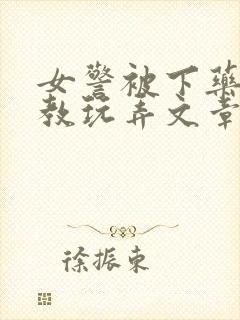 女警被下药
教玩弄文章
徐振东